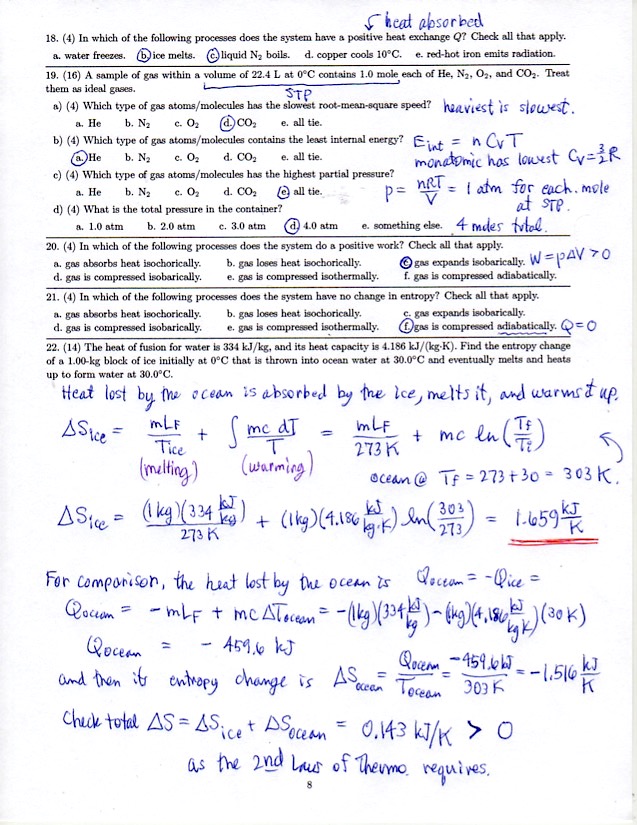 ↓ heat absorbed
18. (4) In which of the following processes does the system have a positive heat exchange Q? Check all that apply.
a. water freezes. b. ice melts. c. liquid N₂ boils. d. copper cools 10°C. e. red-hot iron emits radiation.
19. (16) A sample of gas within a volume of 22.4 L at 0°C contains 1.0 mole each of He, N₂, O₂, and CO₂. Treat
them as ideal gases.
STP
a) (4) Which type of gas atoms/molecules has the slowest root-mean-square speed? heaviest is slowest.
a. He b. N₂ c. O₂ d. CO₂ e. all tie.
b) (4) Which type of gas atoms/molecules contains the least internal energy? Eint = n CvT
a. He b. N₂ c. O₂ d. CO₂ e. all tie. monatomic has lowest Cv = 3/2 R
c) (4) Which type of gas atoms/molecules has the highest partial pressure?
a. He b. N₂ c. O₂ d. CO₂ e. all tie. p = nRT/V = 1 atm for each mole
at STP.
d) (4) What is the total pressure in the container?
a. 1.0 atm b. 2.0 atm c. 3.0 atm d. 4.0 atm e. something else. 4 moles total.
20. (4) In which of the following processes does the system do a positive work? Check all that apply.
a. gas absorbs heat isochorically. b. gas loses heat isochorically. c. gas expands isobarically. W = pΔV > 0
d. gas is compressed isobarically. e. gas is compressed isothermally. f. gas is compressed adiabatically.
21. (4) In which of the following processes does the system have no change in entropy? Check all that apply.
a. gas absorbs heat isochorically. b. gas loses heat isochorically. c. gas expands isobarically.
d. gas is compressed isobarically. e. gas is compressed isothermally. f. gas is compressed adiabatically. Q = 0
22. (14) The heat of fusion for water is 334 kJ/kg, and its heat capacity is 4.186 kJ/(kg·K). Find the entropy change
of a 1.00-kg block of ice initially at 0°C that is thrown into ocean water at 30.0°C and eventually melts and heats
up to form water at 30.0°C.
Heat lost by the ocean is absorbed by the ice, melts it, and warms it up.
ΔSice = mLF/Tice + ∫ mc dT/T = mLF/273 K + mc ln(Tf/Ti)
(melting) (warming) ocean @ Tf = 273+30 = 303 K.
ΔSice = (1 kg)(334 kJ/kg)/273 K + (1 kg)(4.186 kJ/kg·K) ln(303/273) = 1.659 kJ/K
For comparison, the heat lost by the ocean is Qocean = -Qice =
Qocean = -mLF + mcΔTocean = -(1kg)(334 kJ/kg) - (1kg)(4.186 kJ/kgK)(30 K)
Qocean = - 459.6 kJ
and then its entropy change is ΔSocean = Qocean/Tocean = -459.6 kJ/303 K = -1.516 kJ/K
Check total ΔS = ΔSice + ΔSocean = 0.143 kJ/K > 0
as the 2nd Law of Thermo. requires.
8